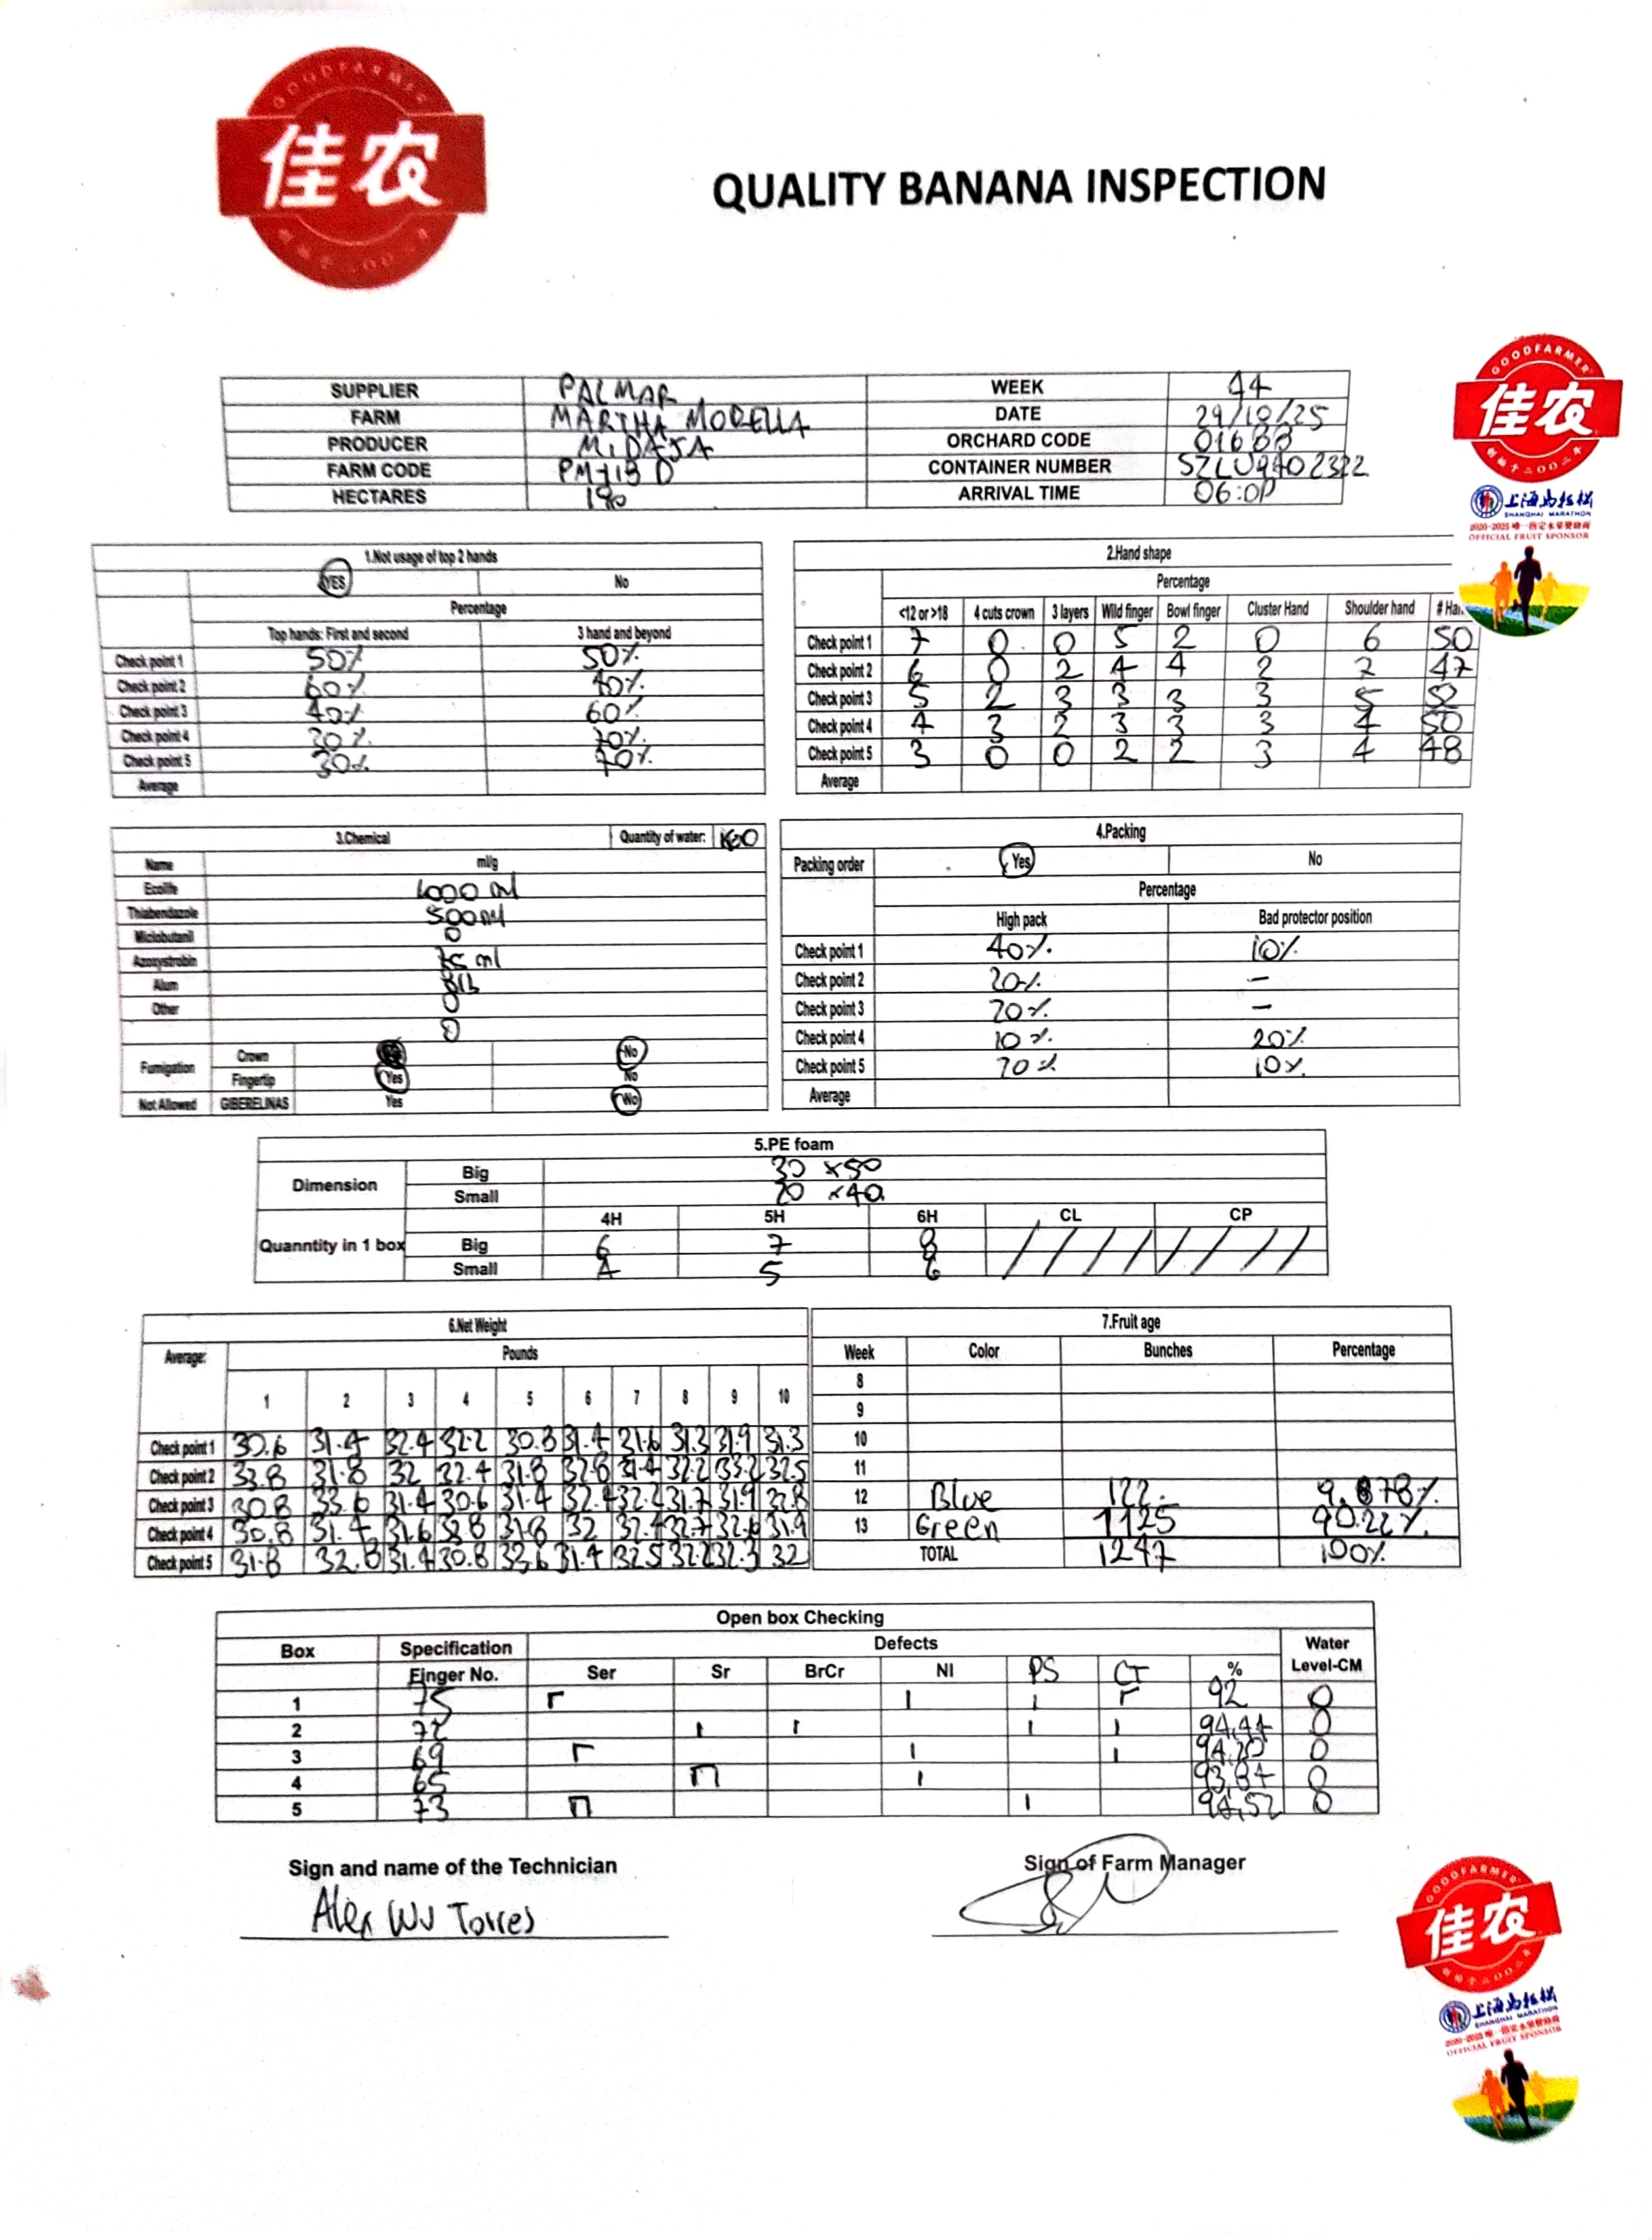 GOODFARMER
佳农
QUALITY BANANA INSPECTION
SUPPLIER PALMAR WEEK 44
FARM MARTHA MORELLA DATE 29/10/25
PRODUCER MIDAJA ORCHARD CODE
FARM CODE CONTAINER NUMBER
HECTARES 190 ARRIVAL TIME 06:00
GOODFARMER
佳农
创始于二〇〇二年
上海马拉松
SHANGHAI MARATHON
2020-2025 唯一指定水果赞助商
OFFICIAL FRUIT SPONSOR
1.Not usage of top 2 hands
YES No
Percentage
Top hands: First and second 3 hand and beyond
Check point 1 50% 50%
Check point 2 60% 40%
Check point 3 40% 60%
Check point 4 30% 70%
Check point 5 30% 70%
Average
2.Hand shape
Percentage
<12 or >18 4 cuts crown 3 layers Wild finger Bowl finger Cluster Hand Shoulder hand # Han
Check point 1 7 0 0 5 2 0 6 50
Check point 2 6 0 2 4 4 2 7 47
Check point 3 5 2 3 3 3 3 5 52
Check point 4 4 3 2 3 3 3 4 50
Check point 5 3 0 0 2 2 3 4 48
Average
3.Chemical Quantity of water:
Name ml/g
Ecolife 1000 ml
Thiabendazole 500 ml
Miclobutanil 0
Azoxystrobin 75 ml
Alum 8lb
Other 0
0
Fumigation Crown No
Fingertip Yes No
Not Allowed GIBERELINAS Yes No
4.Packing
Packing order Yes No
Percentage
High pack Bad protector position
Check point 1 40% 10%
Check point 2 20% -
Check point 3 20% -
Check point 4 10% 20%
Check point 5 20% 10%
Average
5.PE foam
Dimension Big 30 x50
Small 20 x40
4H 5H 6H CL CP
Quanntity in 1 box Big 6 7 8
Small 4 5 6
6.Net Weight
Average: Pounds
1 2 3 4 5 6 7 8 9 10
Check point 1 30.6 31.4 32.4 32.2 30.8 31.4 31.6 31.3 31.9 31.3
Check point 2 33.8 31.8 32 32.4 31.8 32.8 31.4 32.2 33.2 32.5
Check point 3 30.8 33.6 31.4 30.6 31.4 32.4 32.2 31.7 31.9 32.8
Check point 4 30.8 31.4 31.6 33.8 31.8 32 32.4 32.7 32.6 31.9
Check point 5 31.8 32.8 31.4 30.8 33.6 31.4 32.5 32.2 32.3 32
7.Fruit age
Week Color Bunches Percentage
8
9
10
11
12 Blue 122 9.878%
13 Green 1125 90.22%
TOTAL 1247 100%
Open box Checking
Box Specification Defects Water
Finger No. Ser Sr BrCr NI PS CT % Level-CM
1 75 92 0
2 72 94,44 0
3 69 94,20 0
4 65 93,84 0
5 73 94,52 0
Sign and name of the Technician Sign of Farm Manager
Alex Wu Torres
GOODFARMER
佳农
创始于二〇〇二年
上海马拉松
SHANGHAI MARATHON
2020-2025 唯一指定水果赞助商
OFFICIAL FRUIT SPONSOR